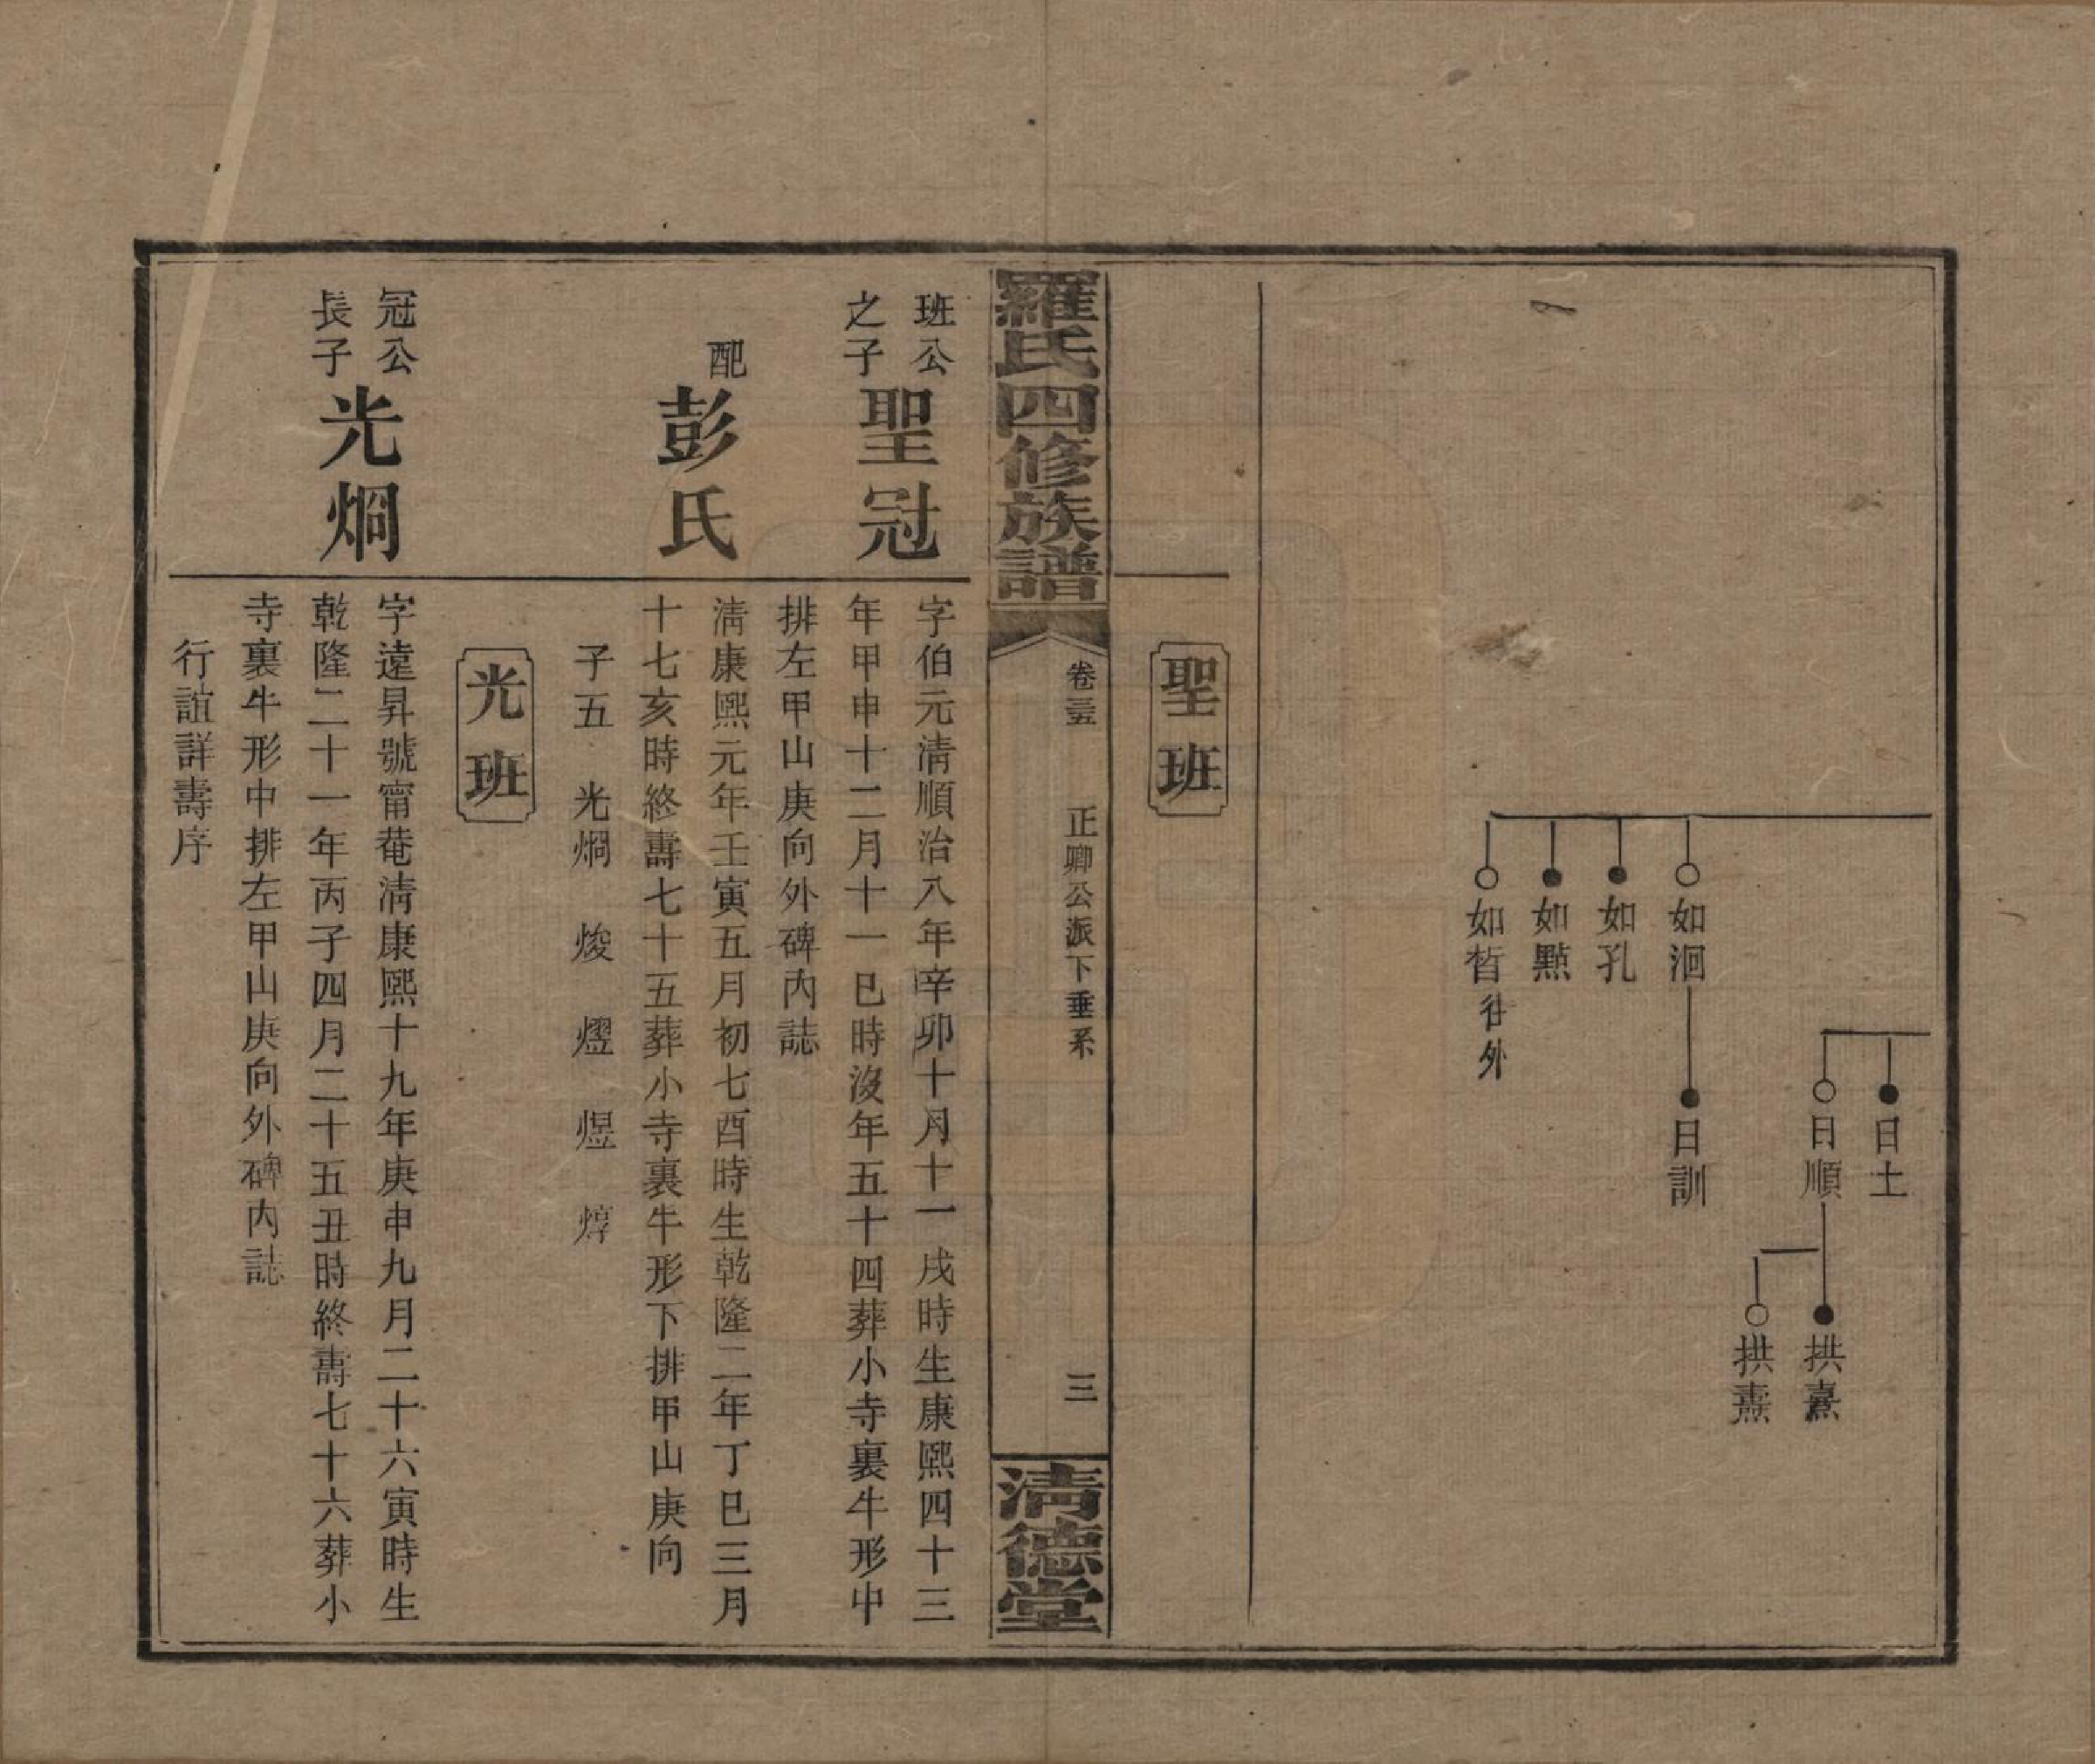 日土
日順
拱熹
拱燾
如洄
日訓
如孔
如點
如晳往外
聖班
羅氏四修族譜
卷三五
正卿公派下垂系
三
清德堂
班公
之子
聖冠
字伯元清順治八年辛卯十月十一戌時生康熙四十三
年甲申十二月十一巳時沒年五十四葬小寺裏牛形中
排左甲山庚向外碑內誌
配
彭氏
清康熙元年壬寅五月初七酉時生乾隆二年丁巳三月
十七亥時終壽七十五葬小寺裏牛形下排甲山庚向
子五 光烱 焌 熤 煜 焞
光班
冠公
長子
光烱
字遠昇號甯菴清康熙十九年庚申九月二十六寅時生
乾隆二十一年丙子四月二十五丑時終壽七十六葬小
寺裏牛形中排左甲山庚向外碑內誌
行誼詳壽序